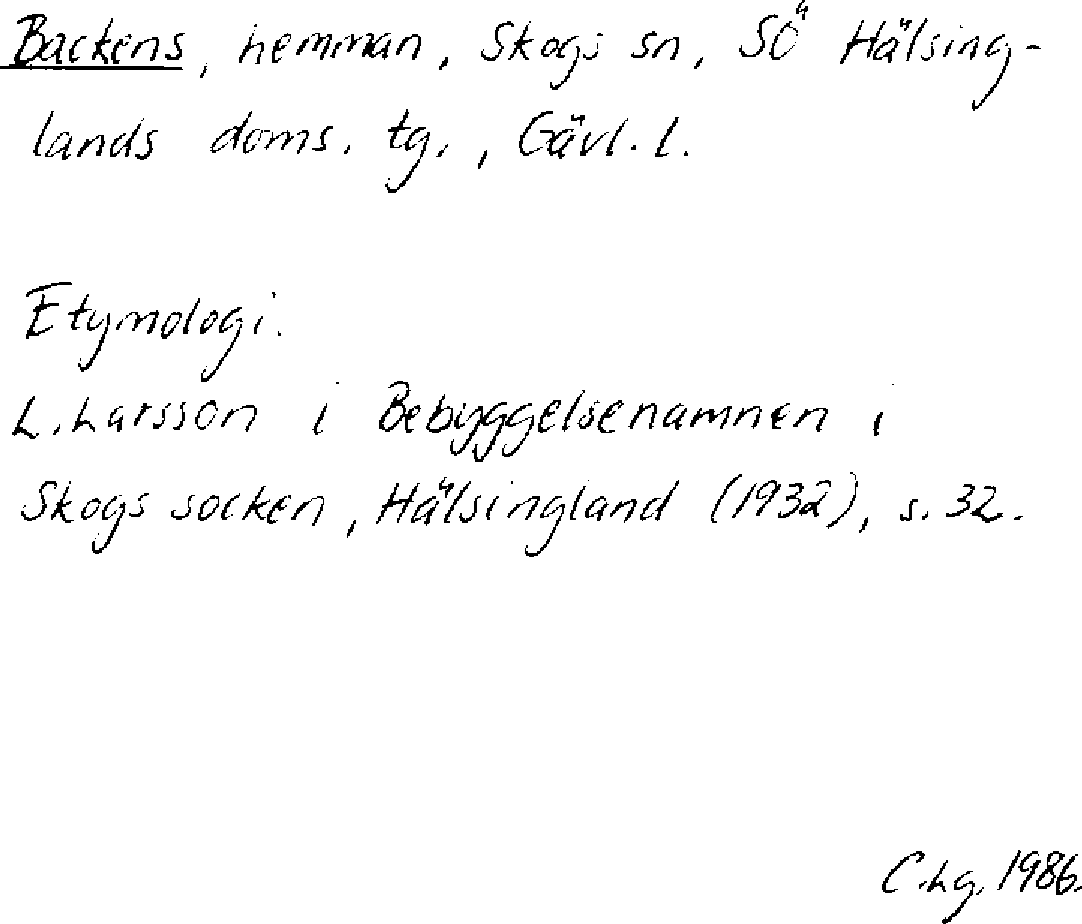 Backens, hemman, Skogs sn, SÖ Hälsing-
lands doms. tg., Gävl. l.
Etymologi.
L. Larsson i Bebyggelsenamnen i
Skogs socken, Hälsingland (1932), s. 32.
C. Lg. 1986.